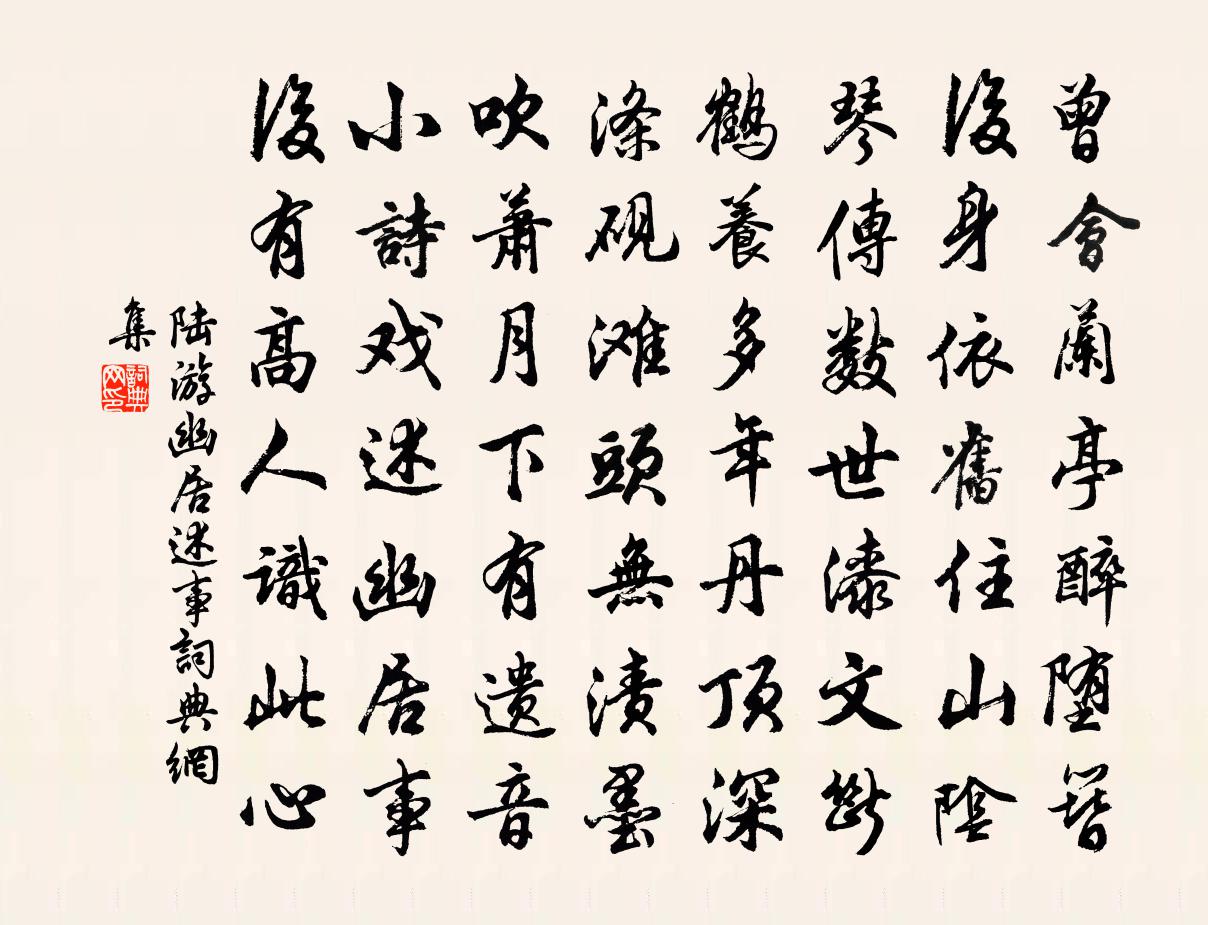 曾會蘭亭醉堕簪
後身依舊住山陰
琴傳數世漆文斷
鶴養多年丹頂深
滌硯滩頭無漬墨
吹萧月下有遗音
小詩戏述幽居事
後有高人識此心
陆游幽居述事詞典網
集
詞典网印